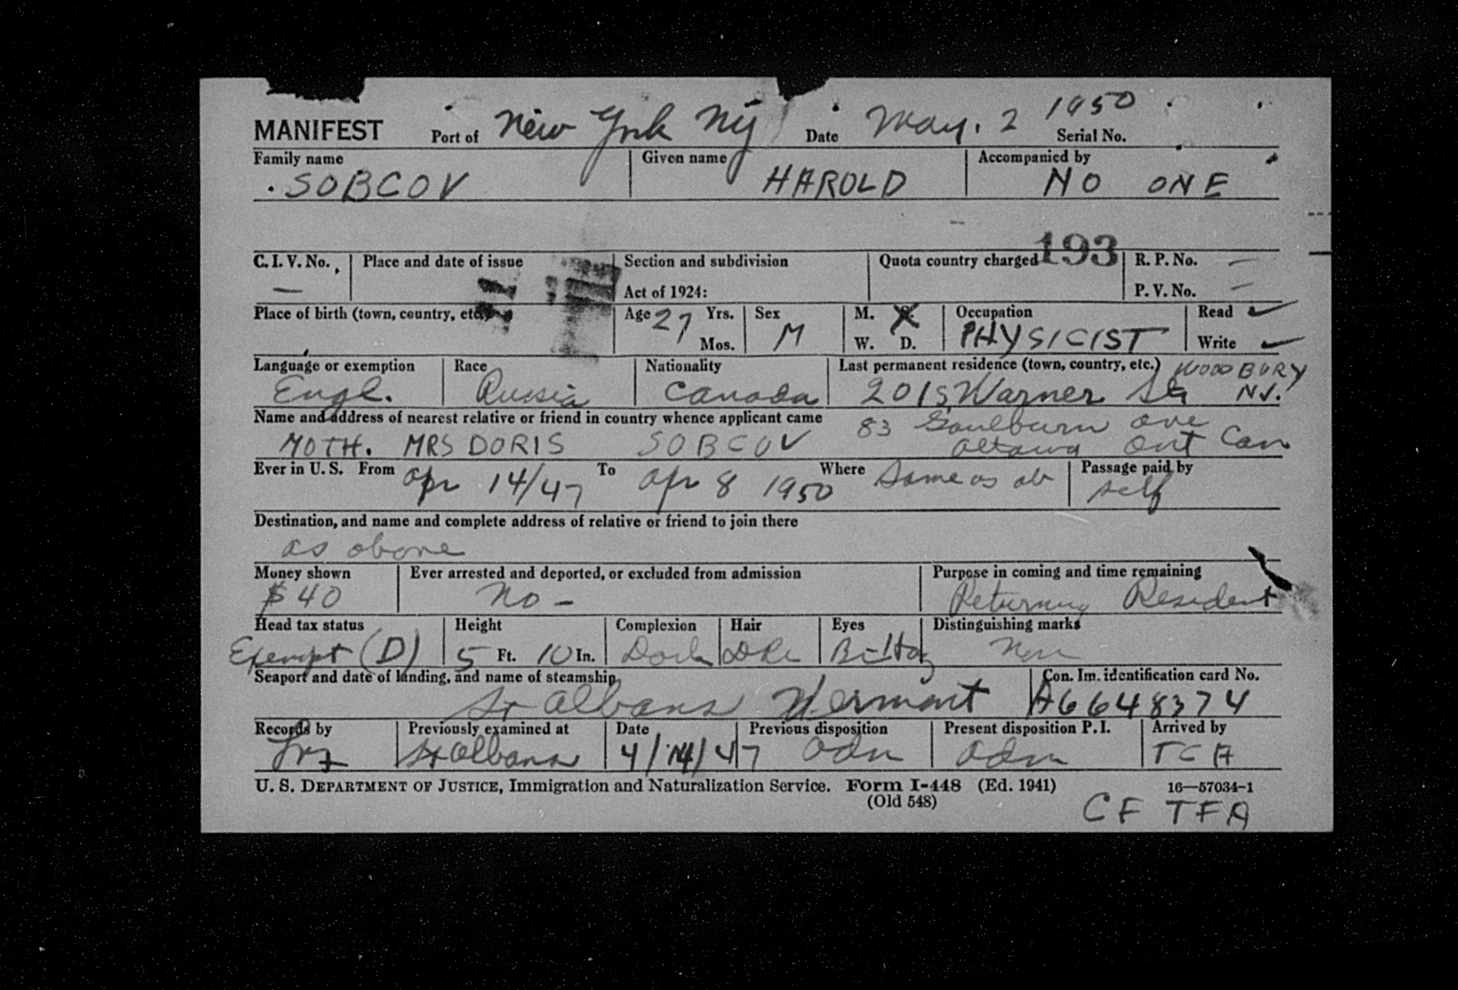 MANIFEST Port of New York NY Date May. 2 1950 Serial No.
Family name Given name Accompanied by
SOBCOV HAROLD NO ONE
193
C. I. V. No. Place and date of issue Section and subdivision Quota country charged R. P. No. —
— Act of 1924: P. V. No. —
Place of birth (town, country, etc.) Age 27 Yrs. Sex M. S. Occupation Read ✓
Mos. M W. D. PHYSICIST Write ✓
Language or exemption Race Nationality Last permanent residence (town, country, etc.) WOODBURY
Engl. Russia Canada 2015 Warner St NJ.
Name and address of nearest relative or friend in country whence applicant came 83 Goulburn ave
MOTH. MRS DORIS SOBCOV Ottawa Ont Can
Ever in U. S. From Apr 14/47 To Apr 8 1950 Where Same as ab Passage paid by
self
Destination, and name and complete address of relative or friend to join there
as above
Money shown Ever arrested and deported, or excluded from admission Purpose in coming and time remaining
$40 No — Returning Resident
Head tax status Height Complexion Hair Eyes Distinguishing marks
Exempt (D) 5 Ft. 10 In. Dark DK
Seaport and date of landing, and name of steamship Con. Im. identification card No.
St Albans Vermont A6648374
Records by Previously examined at Date Previous disposition Present disposition P. I. Arrived by
St Albans 4/14/47 Adm Adm TCA
U. S. DEPARTMENT OF JUSTICE, Immigration and Naturalization Service. Form I-448 (Ed. 1941) 16—57034-1
(Old 548)
CF TFA